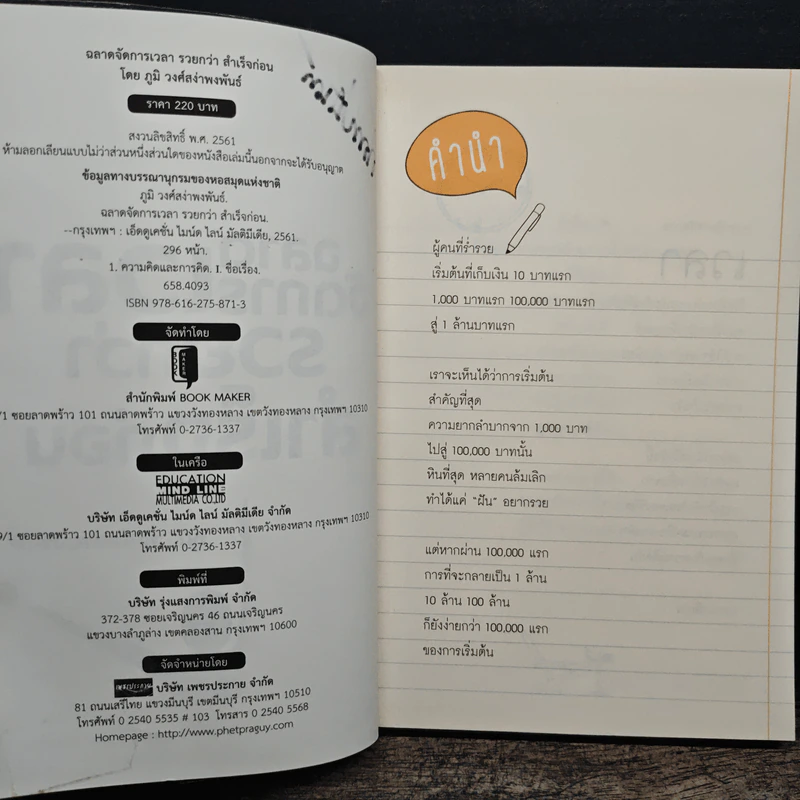 ฉลาดจัดการเวลา รวยกว่า สำเร็จก่อน
โดย ภูมิ วงศ์สง่าพงพันธ์
ราคา 220 บาท
สงวนลิขสิทธิ์ พ.ศ. 2561
ห้ามลอกเลียนแบบไม่ว่าส่วนหนึ่งส่วนใดของหนังสือเล่มนี้นอกจากจะได้รับอนุญาต
ข้อมูลทางบรรณานุกรมของหอสมุดแห่งชาติ
ภูมิ วงศ์สง่าพงพันธ์.
ฉลาดจัดการเวลา รวยกว่า สำเร็จก่อน.
--กรุงเทพฯ : เอ็ดดูเคชั่น ไมน์ด ไลน์ มัลติมีเดีย, 2561.
296 หน้า.
1. ความคิดและการคิด. I. ชื่อเรื่อง.
658.4093
ISBN 978-616-275-871-3
จัดทำโดย
BOOK MAKER
สำนักพิมพ์ BOOK MAKER
/1 ซอยลาดพร้าว 101 ถนนลาดพร้าว แขวงวังทองหลาง เขตวังทองหลาง กรุงเทพฯ 10310
โทรศัพท์ 0-2736-1337
ในเครือ
EDUCATION
MIND LINE
MULTIMEDIA CO.,LTD
บริษัท เอ็ดดูเคชั่น ไมน์ด ไลน์ มัลติมีเดีย จำกัด
9/1 ซอยลาดพร้าว 101 ถนนลาดพร้าว แขวงวังทองหลาง เขตวังทองหลาง กรุงเทพฯ 10310
โทรศัพท์ 0-2736-1337
พิมพ์ที่
บริษัท รุ่งแสงการพิมพ์ จำกัด
372-378 ซอยเจริญนคร 46 ถนนเจริญนคร
แขวงบางลำภูล่าง เขตคลองสาน กรุงเทพฯ 10600
จัดจำหน่ายโดย
เพชรประกาย บริษัท เพชรประกาย จำกัด
81 ถนนเสรีไทย แขวงมีนบุรี เขตมีนบุรี กรุงเทพฯ 10510
โทรศัพท์ 0 2540 5535 # 103 โทรสาร 0 2540 5568
Homepage : http://www.phetpraguy.com
คำนำ
ผู้คนที่ร่ำรวย
เริ่มต้นที่เก็บเงิน 10 บาทแรก
1,000 บาทแรก 100,000 บาทแรก
สู่ 1 ล้านบาทแรก
เราจะเห็นได้ว่าการเริ่มต้น
สำคัญที่สุด
ความยากลำบากจาก 1,000 บาท
ไปสู่ 100,000 บาทนั้น
หินที่สุด หลายคนล้มเลิก
ทำได้แค่ “ฝัน” อยากรวย
แต่หากผ่าน 100,000 แรก
การที่จะกลายเป็น 1 ล้าน
10 ล้าน 100 ล้าน
ก็ยังง่ายกว่า 100,000 แรก
ของการเริ่มต้น